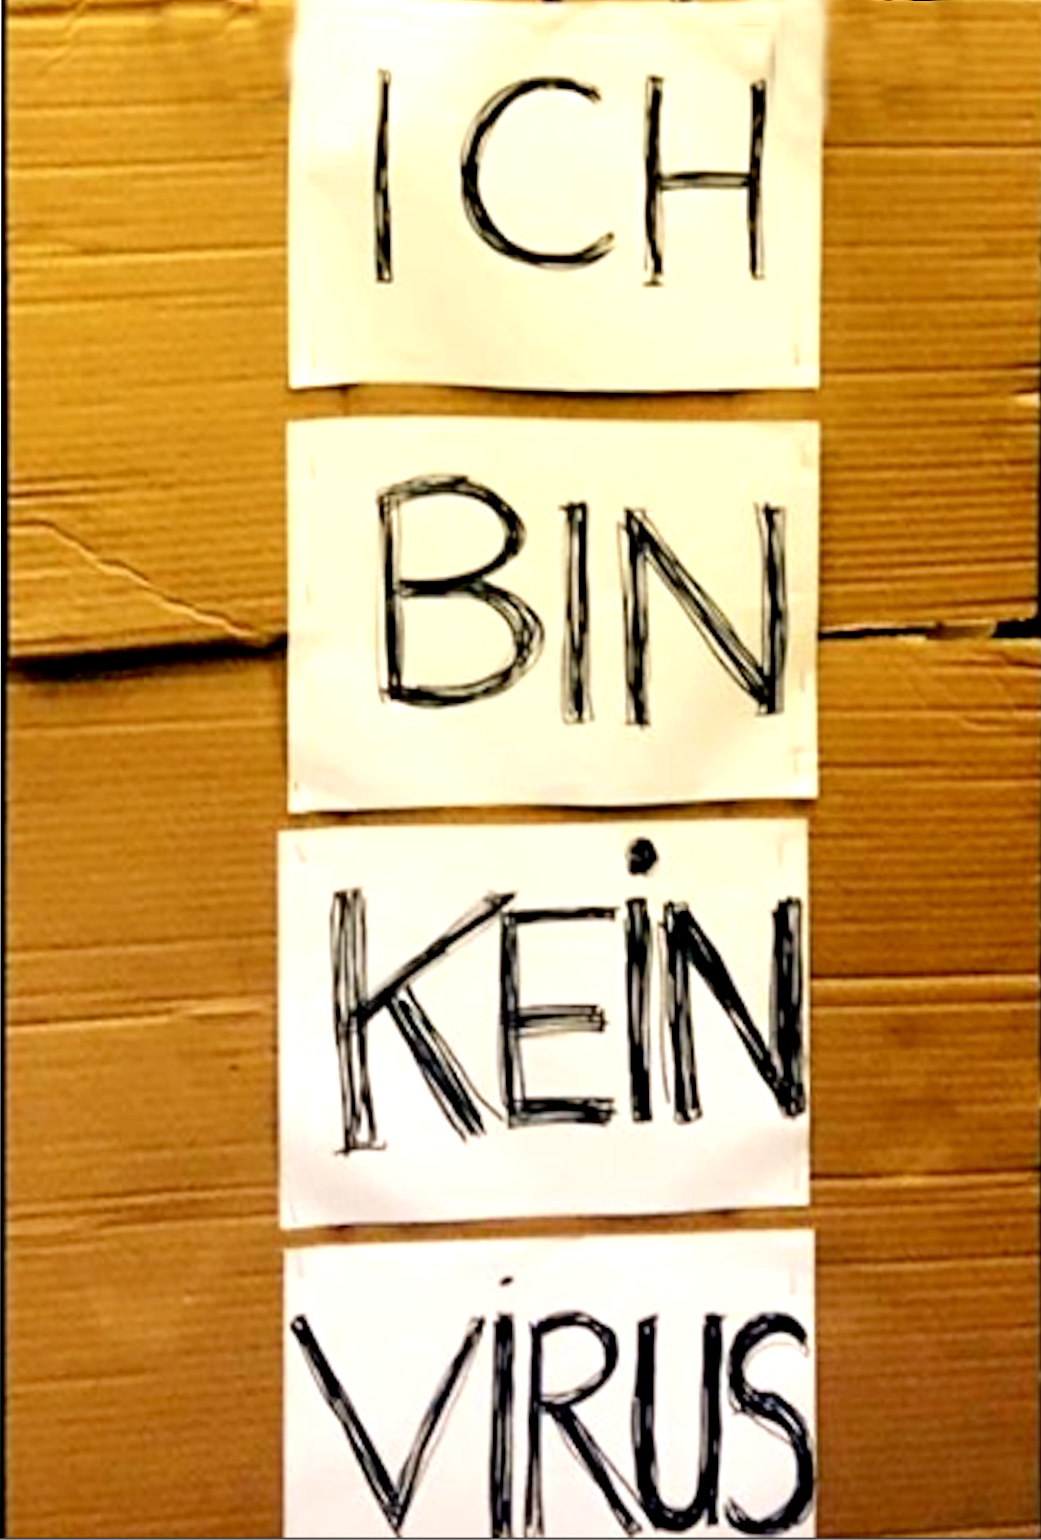 ICH
BIN
KEiN
ViRUS